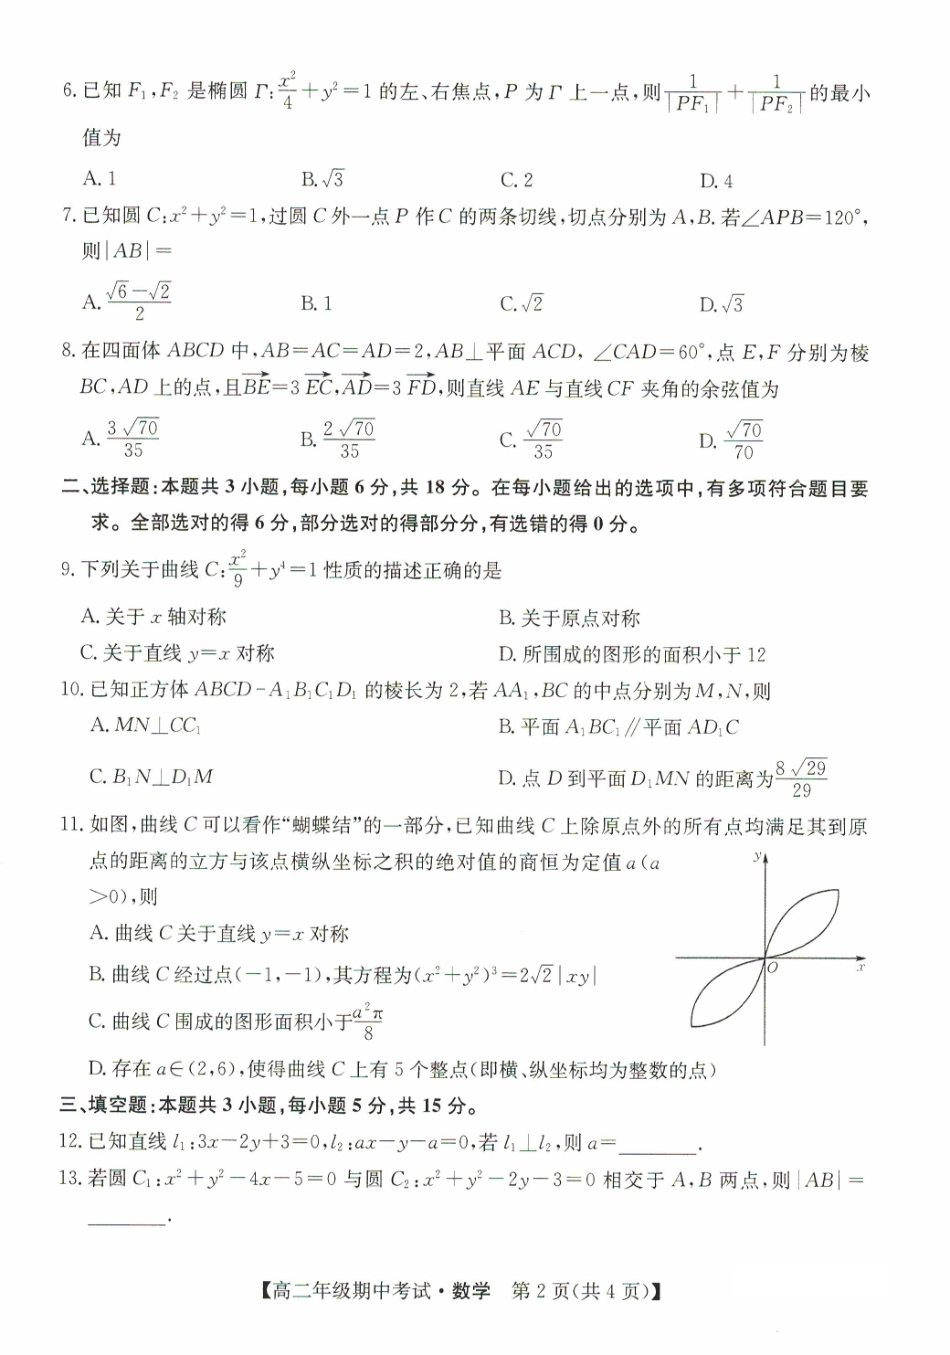 6.已知 F₁,F₂ 是椭圆 Γ:x²/4+y²=1 的左、右焦点,P 为 Γ 上一点,则1/|PF₁|+1/|PF₂|的最小
值为
A.1 B.√3 C.2 D.4
7.已知圆 C:x²+y²=1,过圆 C 外一点 P 作 C 的两条切线,切点分别为 A,B.若∠APB=120°,
则|AB|=
A.(√6-√2)/2 B.1 C.√2 D.√3
8.在四面体 ABCD 中,AB=AC=AD=2,AB⊥平面 ACD,∠CAD=60°,点 E,F 分别为棱
BC,AD 上的点,且BE→=3 EC→,AD→=3 FD→,则直线 AE 与直线 CF 夹角的余弦值为
A.3√70/35 B.2√70/35 C.√70/35 D.√70/70
二、选择题:本题共 3 小题,每小题 6 分,共 18 分。在每小题给出的选项中,有多项符合题目要
求。全部选对的得 6 分,部分选对的得部分分,有选错的得 0 分。
9.下列关于曲线 C:x²/9+y⁴=1 性质的描述正确的是
A.关于 x 轴对称 B.关于原点对称
C.关于直线 y=x 对称 D.所围成的图形的面积小于 12
10.已知正方体 ABCD-A₁B₁C₁D₁ 的棱长为 2,若 AA₁,BC 的中点分别为 M,N,则
A.MN⊥CC₁ B.平面 A₁BC₁∥平面 AD₁C
C.B₁N⊥D₁M D.点 D 到平面 D₁MN 的距离为8√29/29
11.如图,曲线 C 可以看作“蝴蝶结”的一部分,已知曲线 C 上除原点外的所有点均满足其到原
点的距离的立方与该点横纵坐标之积的绝对值的商恒为定值 a(a
>0),则
A.曲线 C 关于直线 y=x 对称
B.曲线 C 经过点(-1,-1),其方程为(x²+y²)³=2√2|xy|
C.曲线 C 围成的图形面积小于a²π/8
D.存在 a∈(2,6),使得曲线 C 上有 5 个整点(即横、纵坐标均为整数的点)
y
O
x
三、填空题:本题共 3 小题,每小题 5 分,共 15 分。
12.已知直线 l₁:3x-2y+3=0,l₂:ax-y-a=0,若 l₁⊥l₂,则 a=______.
13.若圆 C₁:x²+y²-4x-5=0 与圆 C₂:x²+y²-2y-3=0 相交于 A,B 两点,则|AB|=
______.
【高二年级期中考试·数学 第 2 页(共 4 页)】